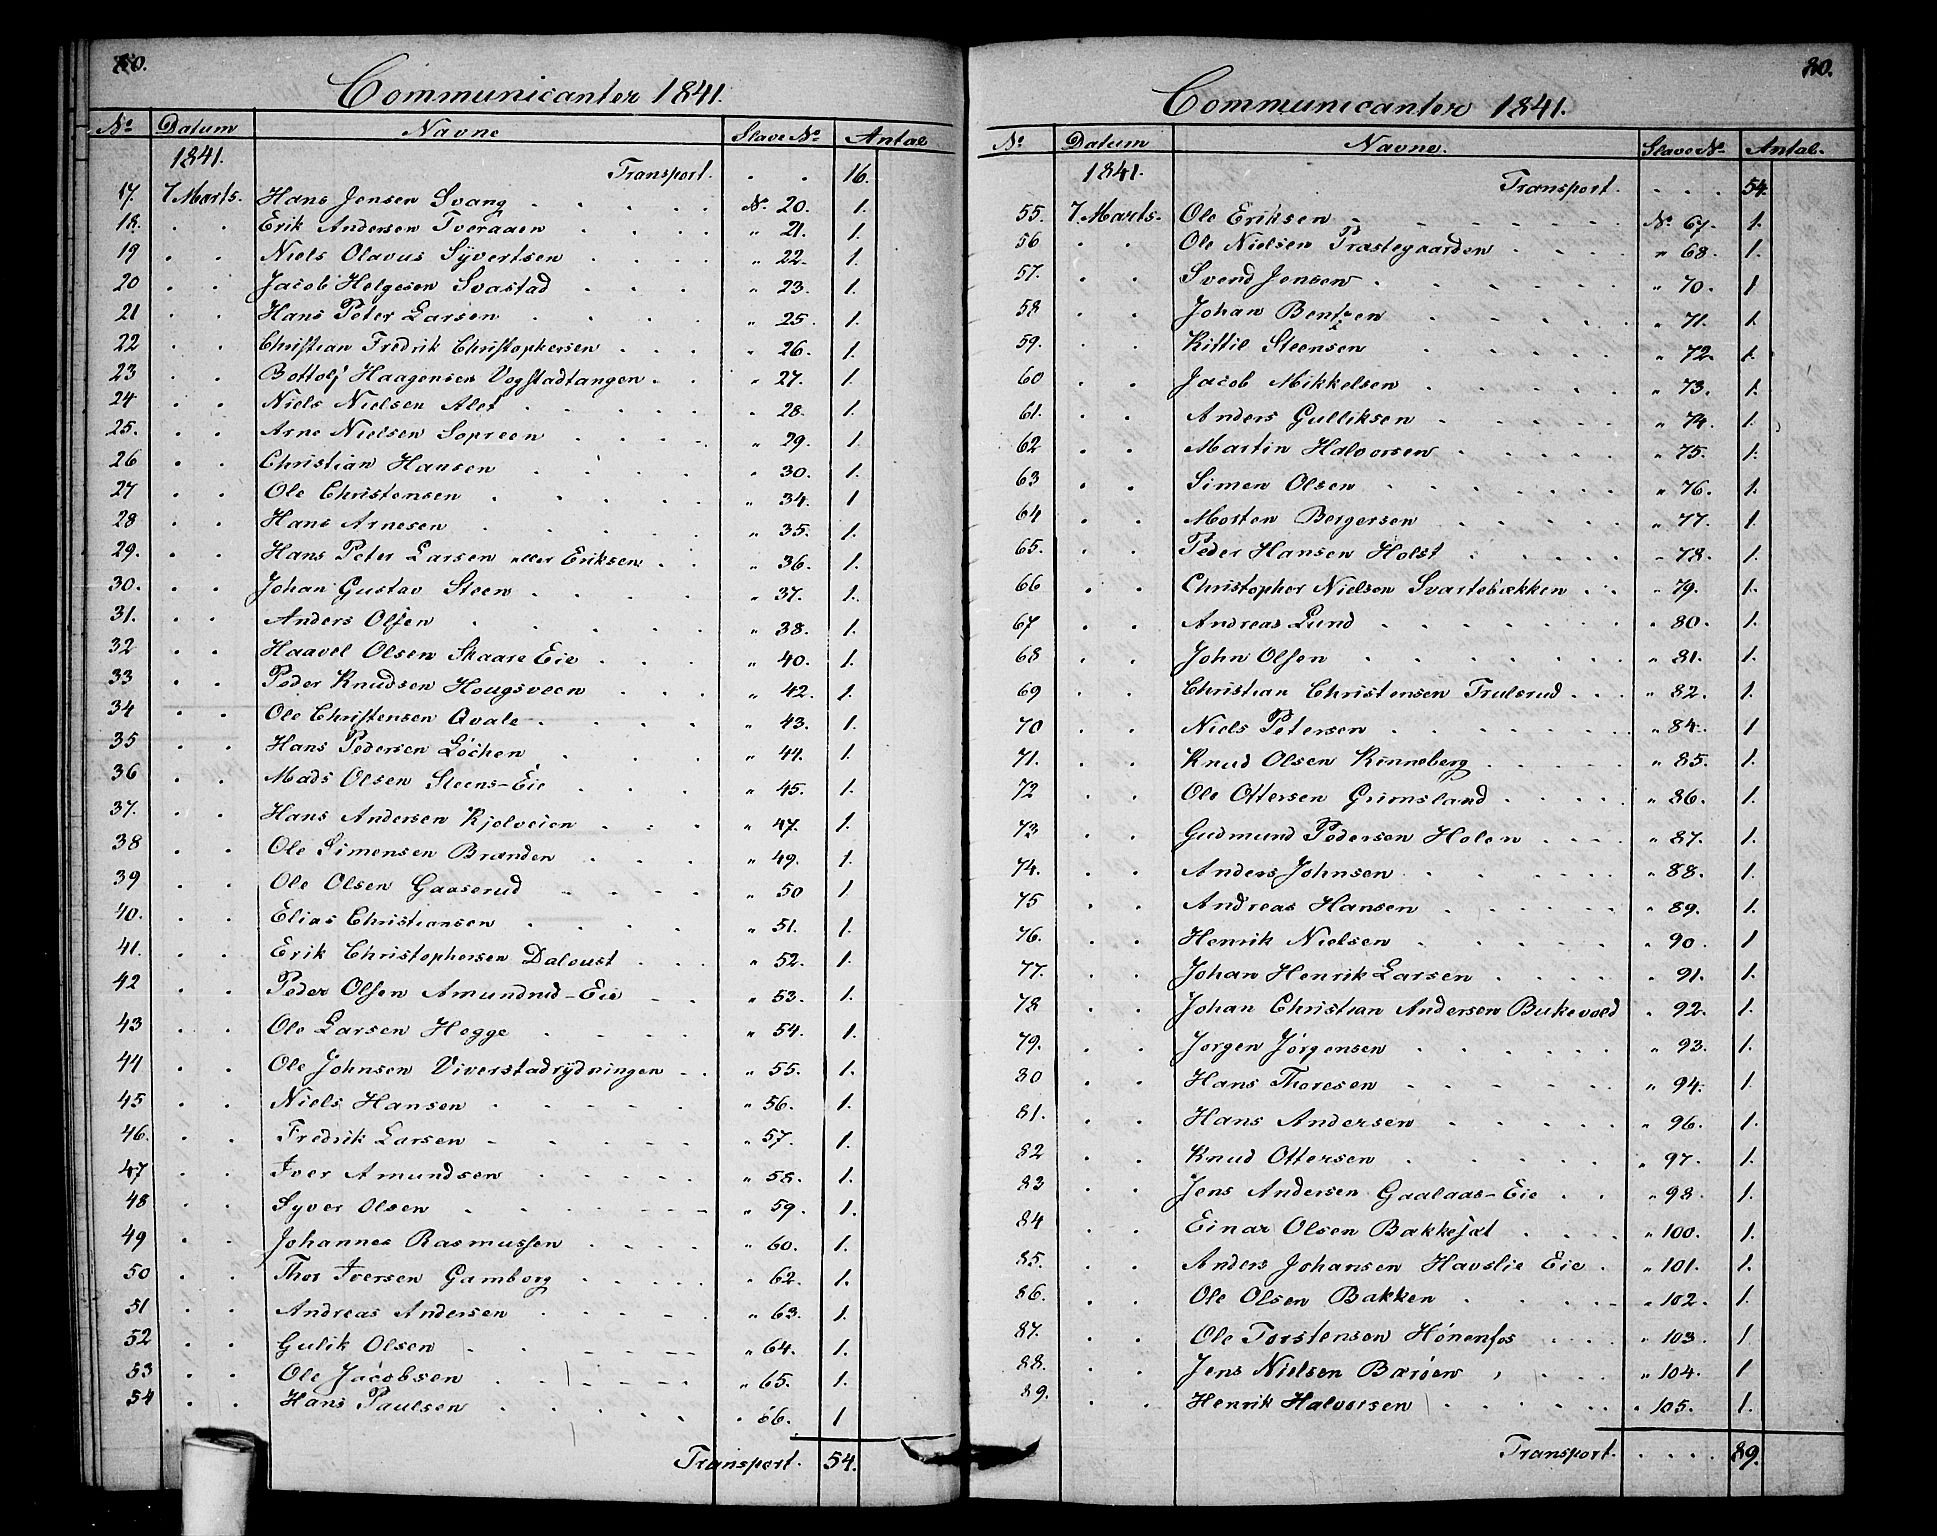 80.
Communicanter 1841.
No Datum Navne Slave No Antal
1841. Transport. . . 16.
17. 7 Marts. Hans Jensen Svang . . . . . No. 20. 1.
18. . . Erik Andersen Tveraaen . . . . " 21. 1.
19 . . Niels Olavus Syvertsen . . . . " 22. 1.
20 . . Jacob Helgesen Svastad . . . " 23. 1.
21 . . Hans Peter Larsen . . . . " 25. 1.
22 . . Christian Fredrik Christophersen . . . " 26. 1.
23 . . Bottolf Haagensen Vogstadtangen . . " 27. 1.
24 . . Niels Nielsen Alet . . . . . " 28. 1.
25. . . Arne Nielsen Sopreen . . . . " 29. 1.
26 . . Christian Hansen . . . . " 30. 1.
27 . . Ole Christensen . . . . . " 34. 1
28 . . Hans Arnesen . . . . " 35. 1.
29. . . Hans Peter Larsen eller Eriksen . . " 36. 1.
30. . . Johan Gustav Steen . . . . " 37. 1.
31. . . Anders Olsen . . . . . " 38. 1.
32 . . Haavel Olsen Skaare Eie . . . " 40. 1.
33 . . Peder Knudsen Hougsveen . . . " 42. 1.
34 . . Ole Christensen Qvale . . . . " 43. 1.
35 . . Hans Pedersen Löchen . . . " 44. 1.
36 . . Mads Olsen Steens-Eie . . . " 45. 1.
37. . . Hans Andersen Kjolveien . . . " 47. 1.
38 . . Ole Simensen Brænden . . . " 49. 1.
39 . . Ole Olsen Gaaserud . . . . " 50 1
40. . . Elias Christiansen . . . . " 51. 1.
41. . . Erik Christophersen Daloust . . . " 52. 1.
42 . . Peder Olsen Amundrud-Eie . . " 53. 1.
43 . . Ole Larsen Hegge . . . . " 54. 1.
44 . . Ole Johnsen Viverstadrydningen . . " 55. 1.
45 . . Niels Hansen . . . . " 56. 1.
46. . . Fredrik Larsen . . . . . " 57. 1.
47 . . Iver Amundsen . . . . . " 58. 1.
48 . . Syver Olsen . . . . . . " 59. 1.
49 . . Johannes Rasmussen . . . . " 60. 1.
50 . . Thor Iversen Gamborg . . . . " 62. 1.
51 . . Andreas Andersen . . . . " 63. 1.
52 . . Gulik Olsen . . . . . " 64. 1.
53 . . Ole Jacobsen . . . . . " 65. 1.
54 . . Hans Paulsen . . . . . . 66. 1
Transport. 54.
80.
Communicanter 1841.
No Datum Navne. Slave No Antal.
1841. Transport. . . . 54.
55. 7 Marts. Ole Eriksen . . . . . . No. 67. 1.
56 . . Ole Nielsen Præstegaarden . . . . " 68. 1.
57. . . Svend Jensen . . . . . . " 70. 1
58 . . Johan Bentzen . . . . . " 71. 1.
59. . . Kittil Steensen . . . . . " 72. 1.
60 . . Jacob Mikkelsen . . . . . " 73. 1.
61. . . Anders Gulliksen . . . . . " 74. 1.
62 . . Martin Halvorsen . . . . . " 75. 1.
63 . . Simen Olsen . . . . . . " 76. 1.
64 . . Morten Bergersen . . . . . " 77. 1.
65. . . Peder Hansen Holst . . . . . " 78. 1.
66 . . Christopher Nielsen Svartebækken . . " 79. 1.
67 . . Andreas Lund . . . . . . " 80. 1.
68 . . John Olsen . . . . . . " 81. 1.
69 . . Christian Christensen Trulsrud . . . " 82. 1.
70 . . Niels Petersen . . . . . . " 84. 1
71. . . Knud Olsen Rønneberg . . . . . " 85. 1.
72 . . Ole Ottersen Grimsland . . . . " 86. 1.
73 . . Gudmund Pedersen Holen . . . . " 87. 1.
74. . . Anders Johnsen . . . . . " 88. 1.
75 . . Andreas Hansen . . . . . " 89. 1.
76. . . Henrik Nielsen . . . . . " 90. 1
77. . . Johan Henrik Larsen . . . . " 91. 1.
78 . . Johan Christian Andersen Bukevold " 92. 1.
79. . . Jørgen Jørgensen . . . . . " 93. 1.
80 . . Hans Thoresen . . . . . " 94. 1
81. . . Hans Andersen . . . . . " 96. 1.
82 . . Knud Ottersen . . . . . " 97. 1.
83 . . Jens Andersen Gaalaas-Eie . . " 98. 1.
84 . . Einar Olsen Bakkesæt . . . . " 100. 1.
85. . . Anders Johansen Havslie Eie . " 101. 1.
86. . . Ole Olsen Bakken . . . . " 102. 1.
87. . . Ole Torstensen Hønenfos . . . " 103. 1
88. . . Jens Nielsen Barøen . . . . " 104. 1
89. . . Henrik Halvorsen . . . . . " 105. 1.
Transport. . . . . 89.